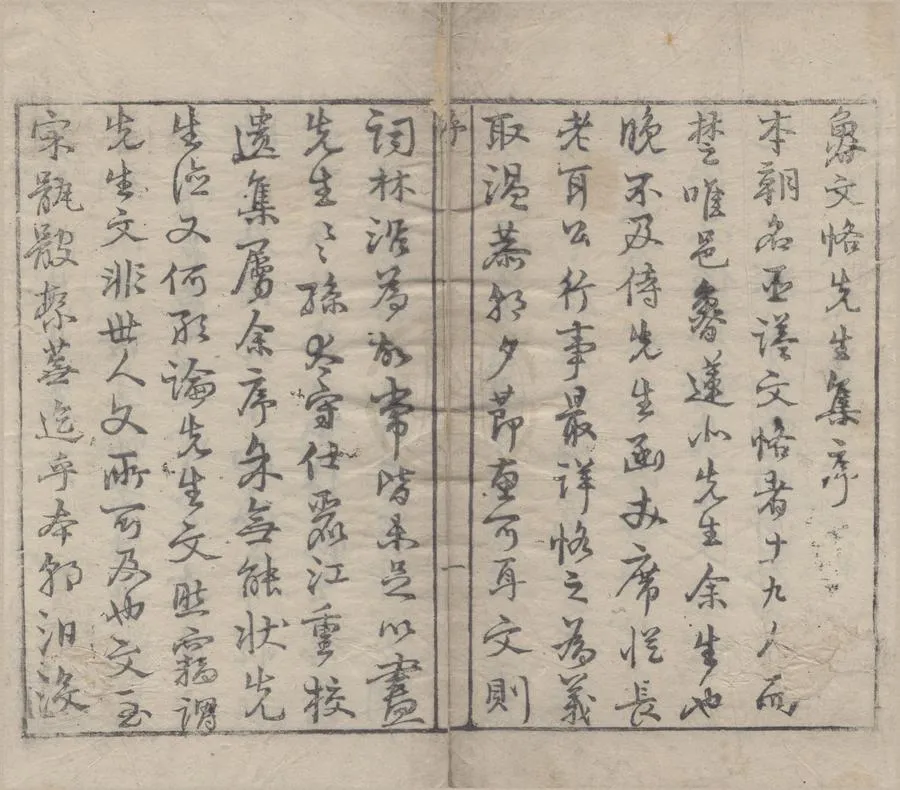 魯文恪先生集序
本朝名臣諡文恪者十九人而
楚唯邑魯蓮北先生余生也
晚不及侍先生函丈席從長
老耳公行事最詳恪之為義
取溫恭朝夕節惠可耳文則
序
一
詞林沿為故常皆未足以盡
先生先生孫太守仕晉江重校
遺集屬余序余無能狀先
生德又何敢論先生文然竊謂
先生文非世人文所可及也文至
宋骫骳蕪迄乎本朝汩沒